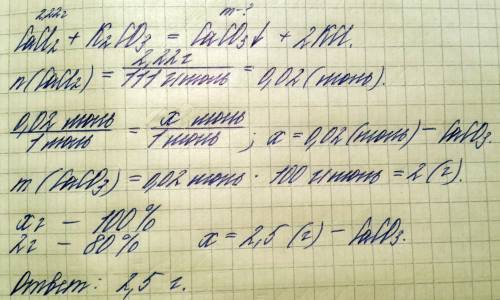 2,22г m-?
CaCl₂ + K₂CO₃ = CaCO₃↓ + 2KCl.
n(CaCl₂) = 2,22г / 111 г/моль = 0,02 (моль).
0,02 моль / 1 моль = x моль / 1 моль ; x = 0,02 (моль) – CaCO₃.
m (CaCO₃) = 0,02 моль · 100 г/моль = 2 (г).
x г – 100 %
2 г – 80 % x = 2,5 (г) – CaCO₃.
Ответ: 2,5 г.